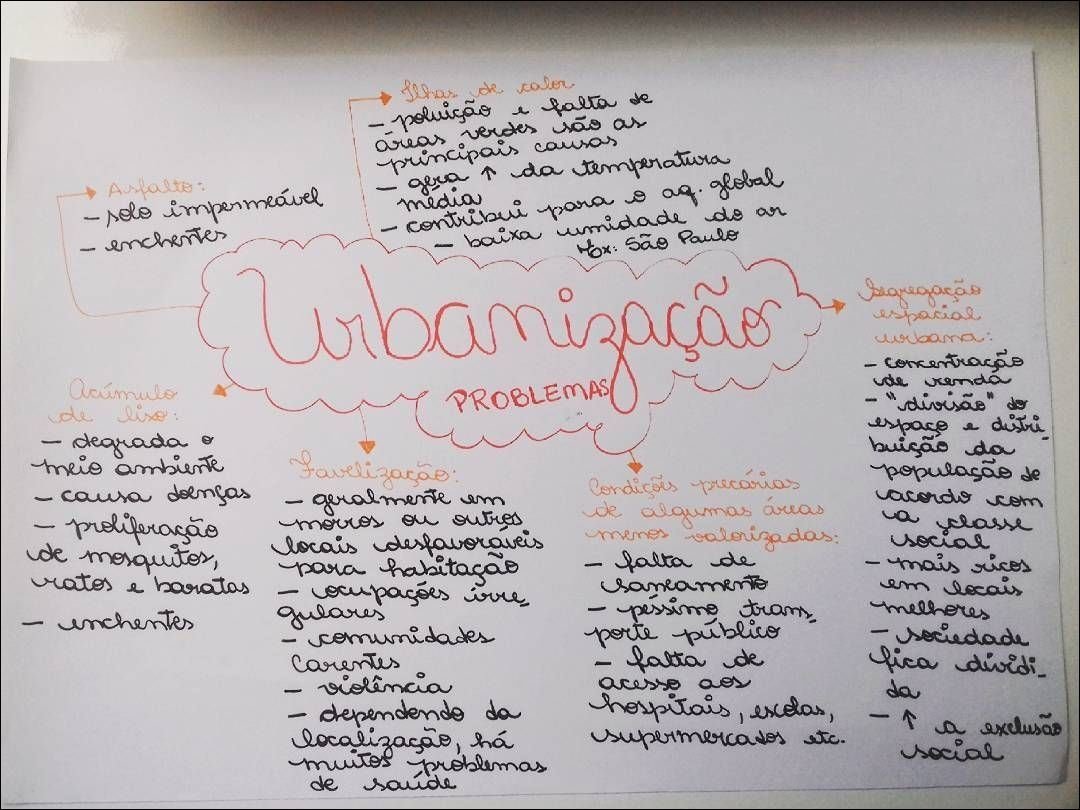 Urbanização
PROBLEMAS
Ilhas de calor
- poluição e falta de
áreas verdes são as
principais causas
- gera ↑ da temperatura
média
- contribui para o aq. global
- baixa umidade do ar
Ex: São Paulo
Asfalto:
- solo impermeável
- enchentes
Acúmulo
de lixo:
- degrada o
meio ambiente
- causa doenças
- proliferação
de mosquitos,
ratos e baratas
- enchentes
Favelização:
- geralmente em
morros ou outros
locais desfavoráveis
para habitação
- ocupações irre-
gulares
- comunidades
carentes
- violência
- dependendo da
localização, há
muitos problemas
de saúde
Condições precárias
de algumas áreas
menos valorizadas:
- falta de
saneamento
- péssimo trans-
porte público
- falta de
acesso aos
hospitais, escolas,
supermercados etc.
Segregação
espacial
urbana:
- concentração
de renda
- "divisão" do
espaço e distri-
buição da
população de
acordo com
a classe
social
- mais ricos
em locais
melhores
- sociedade
fica dividi-
da
- ↑ a exclusão
social